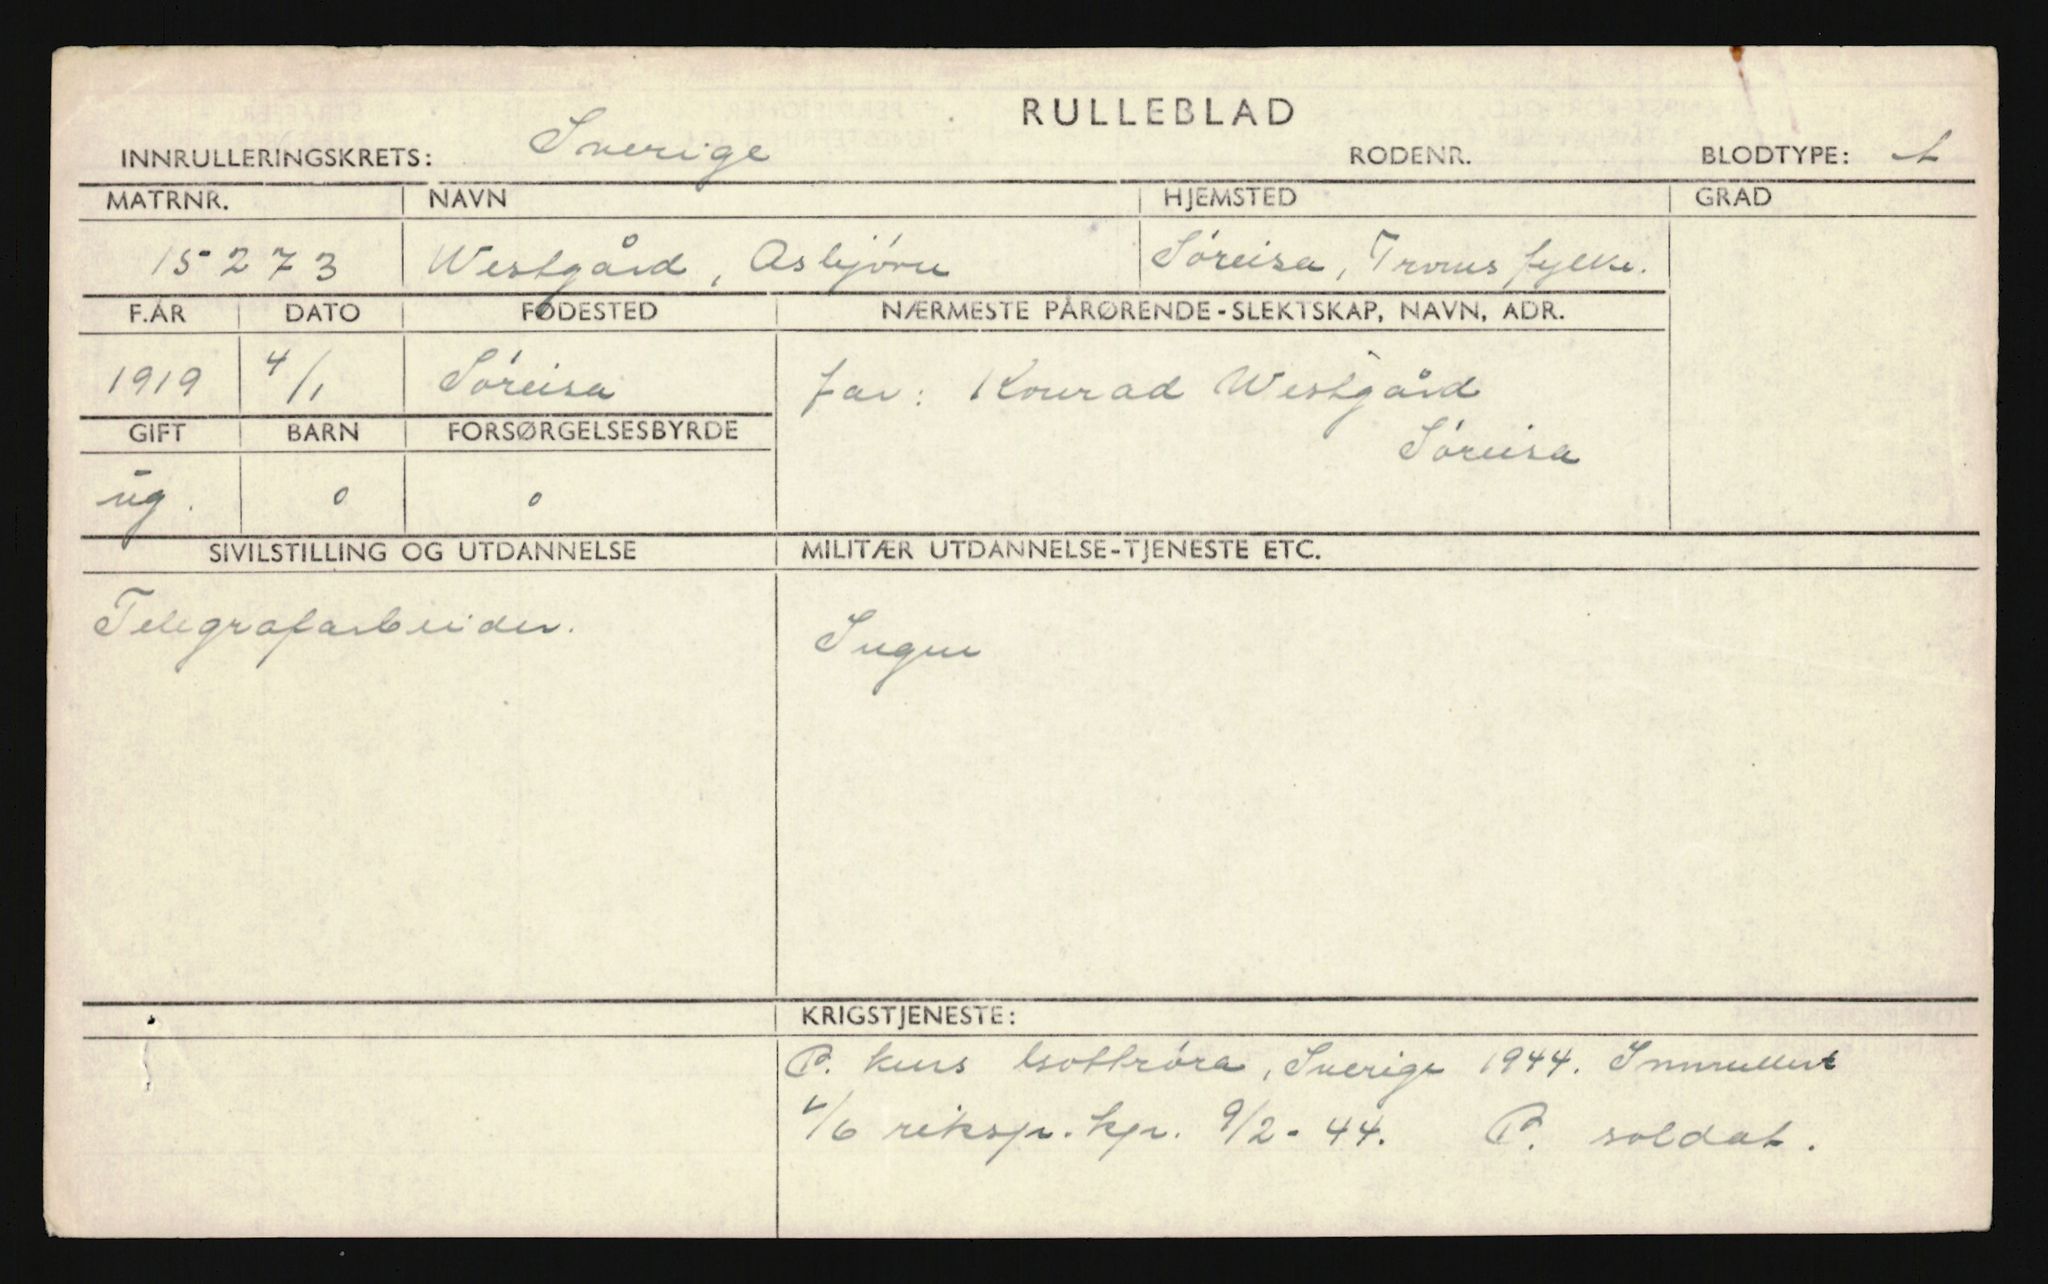 RULLEBLAD
INNRULLERINGSKRETS: Sverige RODENR. BLODTYPE: A
MATRNR. NAVN HJEMSTED GRAD
15273 Westgård, Asbjørn Søreisa, Troms fylke.
F.ÅR DATO FØDESTED NÆRMESTE PÅRØRENDE-SLEKTSKAP, NAVN, ADR.
1919 4/1 Søreisa far: Konrad Westgård
GIFT BARN FORSØRGELSESBYRDE
Søreisa
ug. 0 0
SIVILSTILLING OG UTDANNELSE MILITÆR UTDANNELSE-TJENESTE ETC.
Telegrafarbeider.
Ingen
KRIGSTJENESTE:
P. kurs Gottröra, Sverige 1944. Innrullert
v/6 riksp. kp. 9/2-44. P. soldat.